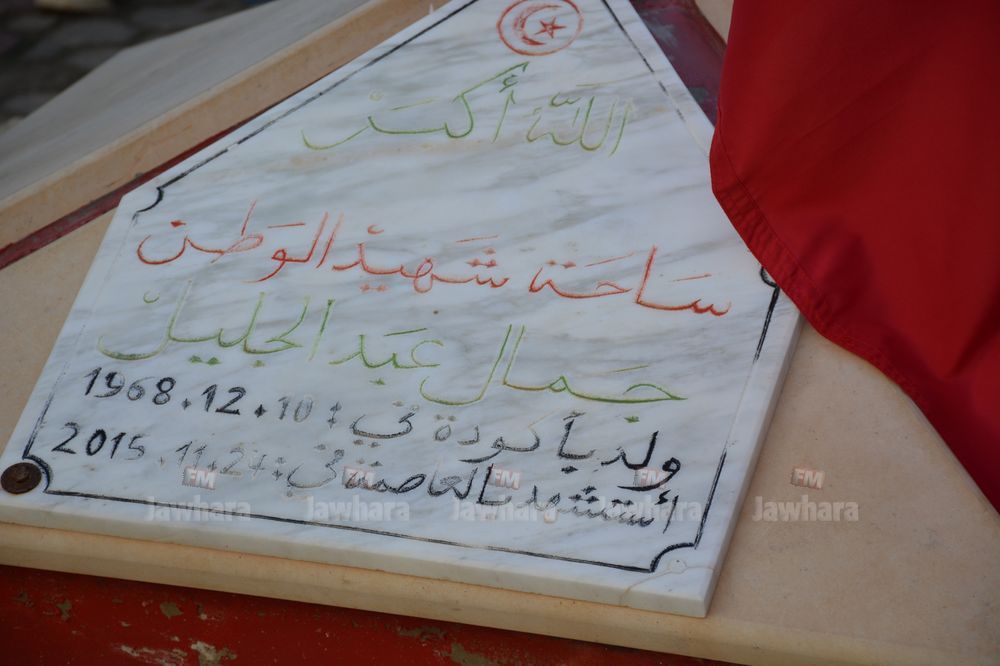 الله أكبر
ساحة شهيد الوطن
جمال عبد الجليل
ولد بأكودة في : 10 . 12 . 1968
أستشهد بالعاصمة في : 24 . 11 . 2015
FM FM FM FM
Jawhara Jawhara Jawhara Jawhara